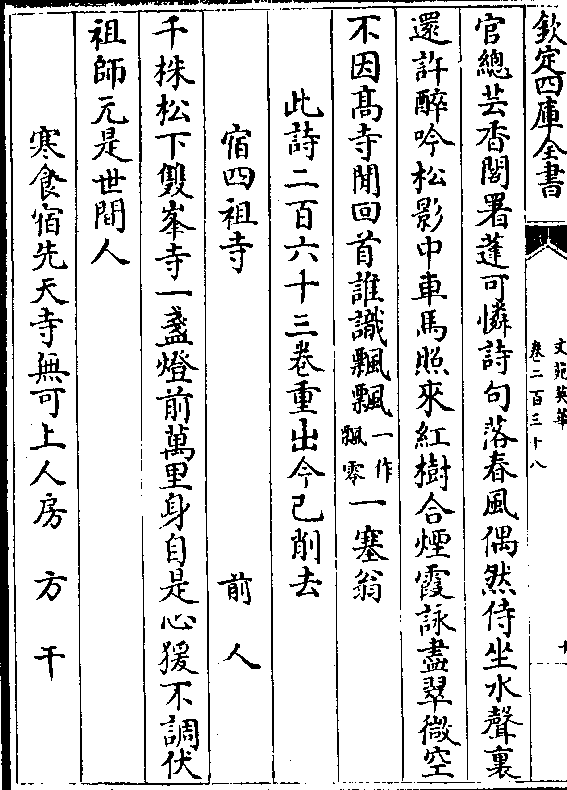 欽定四庫全書
文苑英華
卷二百三十八
十
官總芸香閣署蓬可憐詩句落春風偶然侍坐水聲裏
還許醉吟松影中車馬照來紅樹合煙霞詠盡翠微空
不因髙寺閒回首誰識飄飄一作飄零一塞翁
此詩二百六十三卷重出今已削去
宿四祖寺 前人
千株松下䨇峯寺一盞燈前萬里身自是心猨不調伏
祖師元是世間人
寒食宿先天寺無可上人房 方干